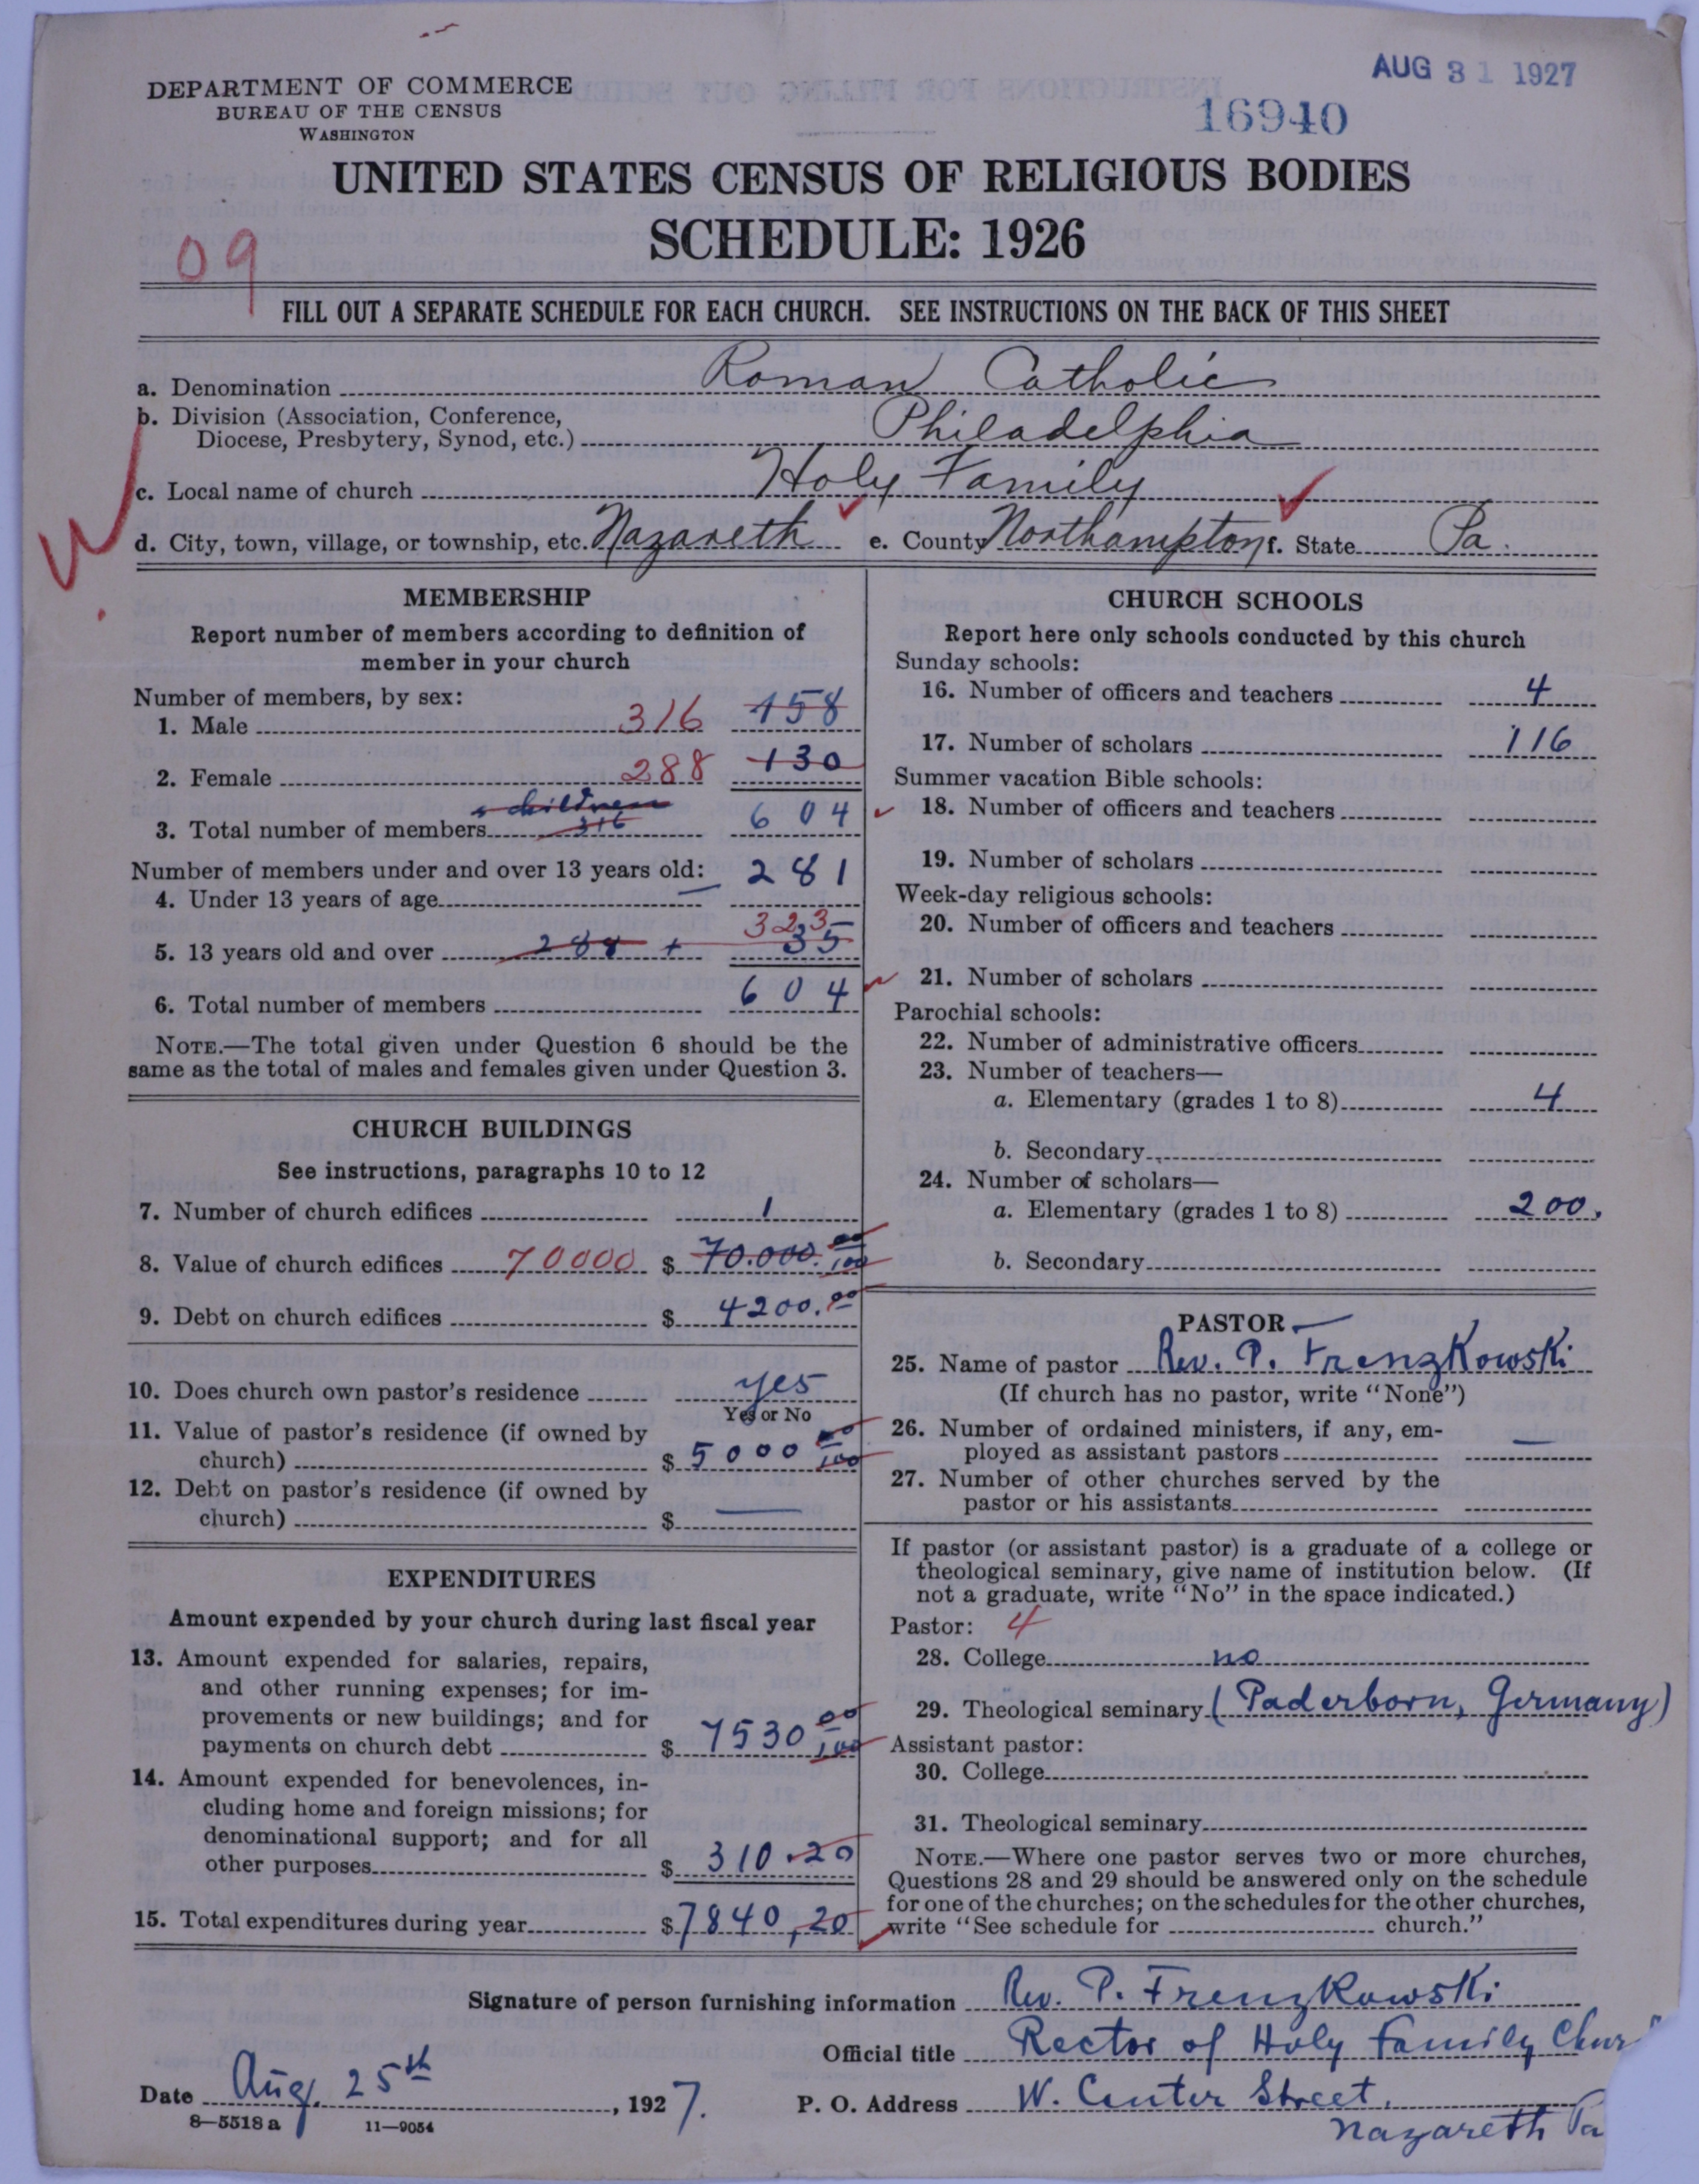 AUG 31 1927
16940
DEPARTMENT OF COMMERCE
BUREAU OF THE CENSUS
WASHINGTON
UNITED STATES CENSUS OF RELIGIOUS BODIES
SCHEDULE: 1926
09
FILL OUT A SEPARATE SCHEDULE FOR EACH CHURCH. SEE INSTRUCTIONS ON THE BACK OF THIS SHEET
a. Denomination Roman Catholic
b. Division (Association, Conference,
Diocese, Presbytery, Synod, etc.) Philadelphia
c. Local name of church Holy Family
d. City, town, village, or township, etc. Nazareth e. County Northampton f. State Pa.
MEMBERSHIP
Report number of members according to definition of
member in your church
Number of members, by sex:
1. Male 316 158
2. Female 288 130
children
3. Total number of members 316 604
Number of members under and over 13 years old: 281
4. Under 13 years of age
323
5. 13 years old and over 288 + 35
6. Total number of members 604
NOTE.—The total given under Question 6 should be the
same as the total of males and females given under Question 3.
CHURCH BUILDINGS
See instructions, paragraphs 10 to 12
7. Number of church edifices 1
8. Value of church edifices 70000 $ 70.000. 00/100
9. Debt on church edifices $ 4200.00
10. Does church own pastor's residence yes
Yes or No
11. Value of pastor's residence (if owned by
church) $ 5000 00/100
12. Debt on pastor's residence (if owned by
church) $ —
EXPENDITURES
Amount expended by your church during last fiscal year
13. Amount expended for salaries, repairs,
and other running expenses; for im-
provements or new buildings; and for
payments on church debt $ 7530 00/100
14. Amount expended for benevolences, in-
cluding home and foreign missions; for
denominational support; and for all
other purposes $ 310.20
15. Total expenditures during year $ 7840,20
CHURCH SCHOOLS
Report here only schools conducted by this church
Sunday schools:
16. Number of officers and teachers 4
17. Number of scholars 116
Summer vacation Bible schools:
18. Number of officers and teachers
19. Number of scholars
Week-day religious schools:
20. Number of officers and teachers
21. Number of scholars
Parochial schools:
22. Number of administrative officers
23. Number of teachers—
a. Elementary (grades 1 to 8) 4
b. Secondary
24. Number of scholars—
a. Elementary (grades 1 to 8) 200.
b. Secondary
PASTOR
25. Name of pastor Rev. P. Frenzkowski
(If church has no pastor, write "None")
26. Number of ordained ministers, if any, em-
ployed as assistant pastors —
27. Number of other churches served by the
pastor or his assistants
If pastor (or assistant pastor) is a graduate of a college or
theological seminary, give name of institution below. (If
not a graduate, write "No" in the space indicated.)
Pastor: 4
28. College no
29. Theological seminary (Paderborn, Germany)
Assistant pastor:
30. College
31. Theological seminary
NOTE.—Where one pastor serves two or more churches,
Questions 28 and 29 should be answered only on the schedule
for one of the churches; on the schedules for the other churches,
write "See schedule for church."
Signature of person furnishing information Rev. P. Frenzkowski
Official title Rector of Holy Family Chur
Date Aug. 25th, 1927. P. O. Address W. Center Street,
Nazareth Pa
8—5518 a 11—9054